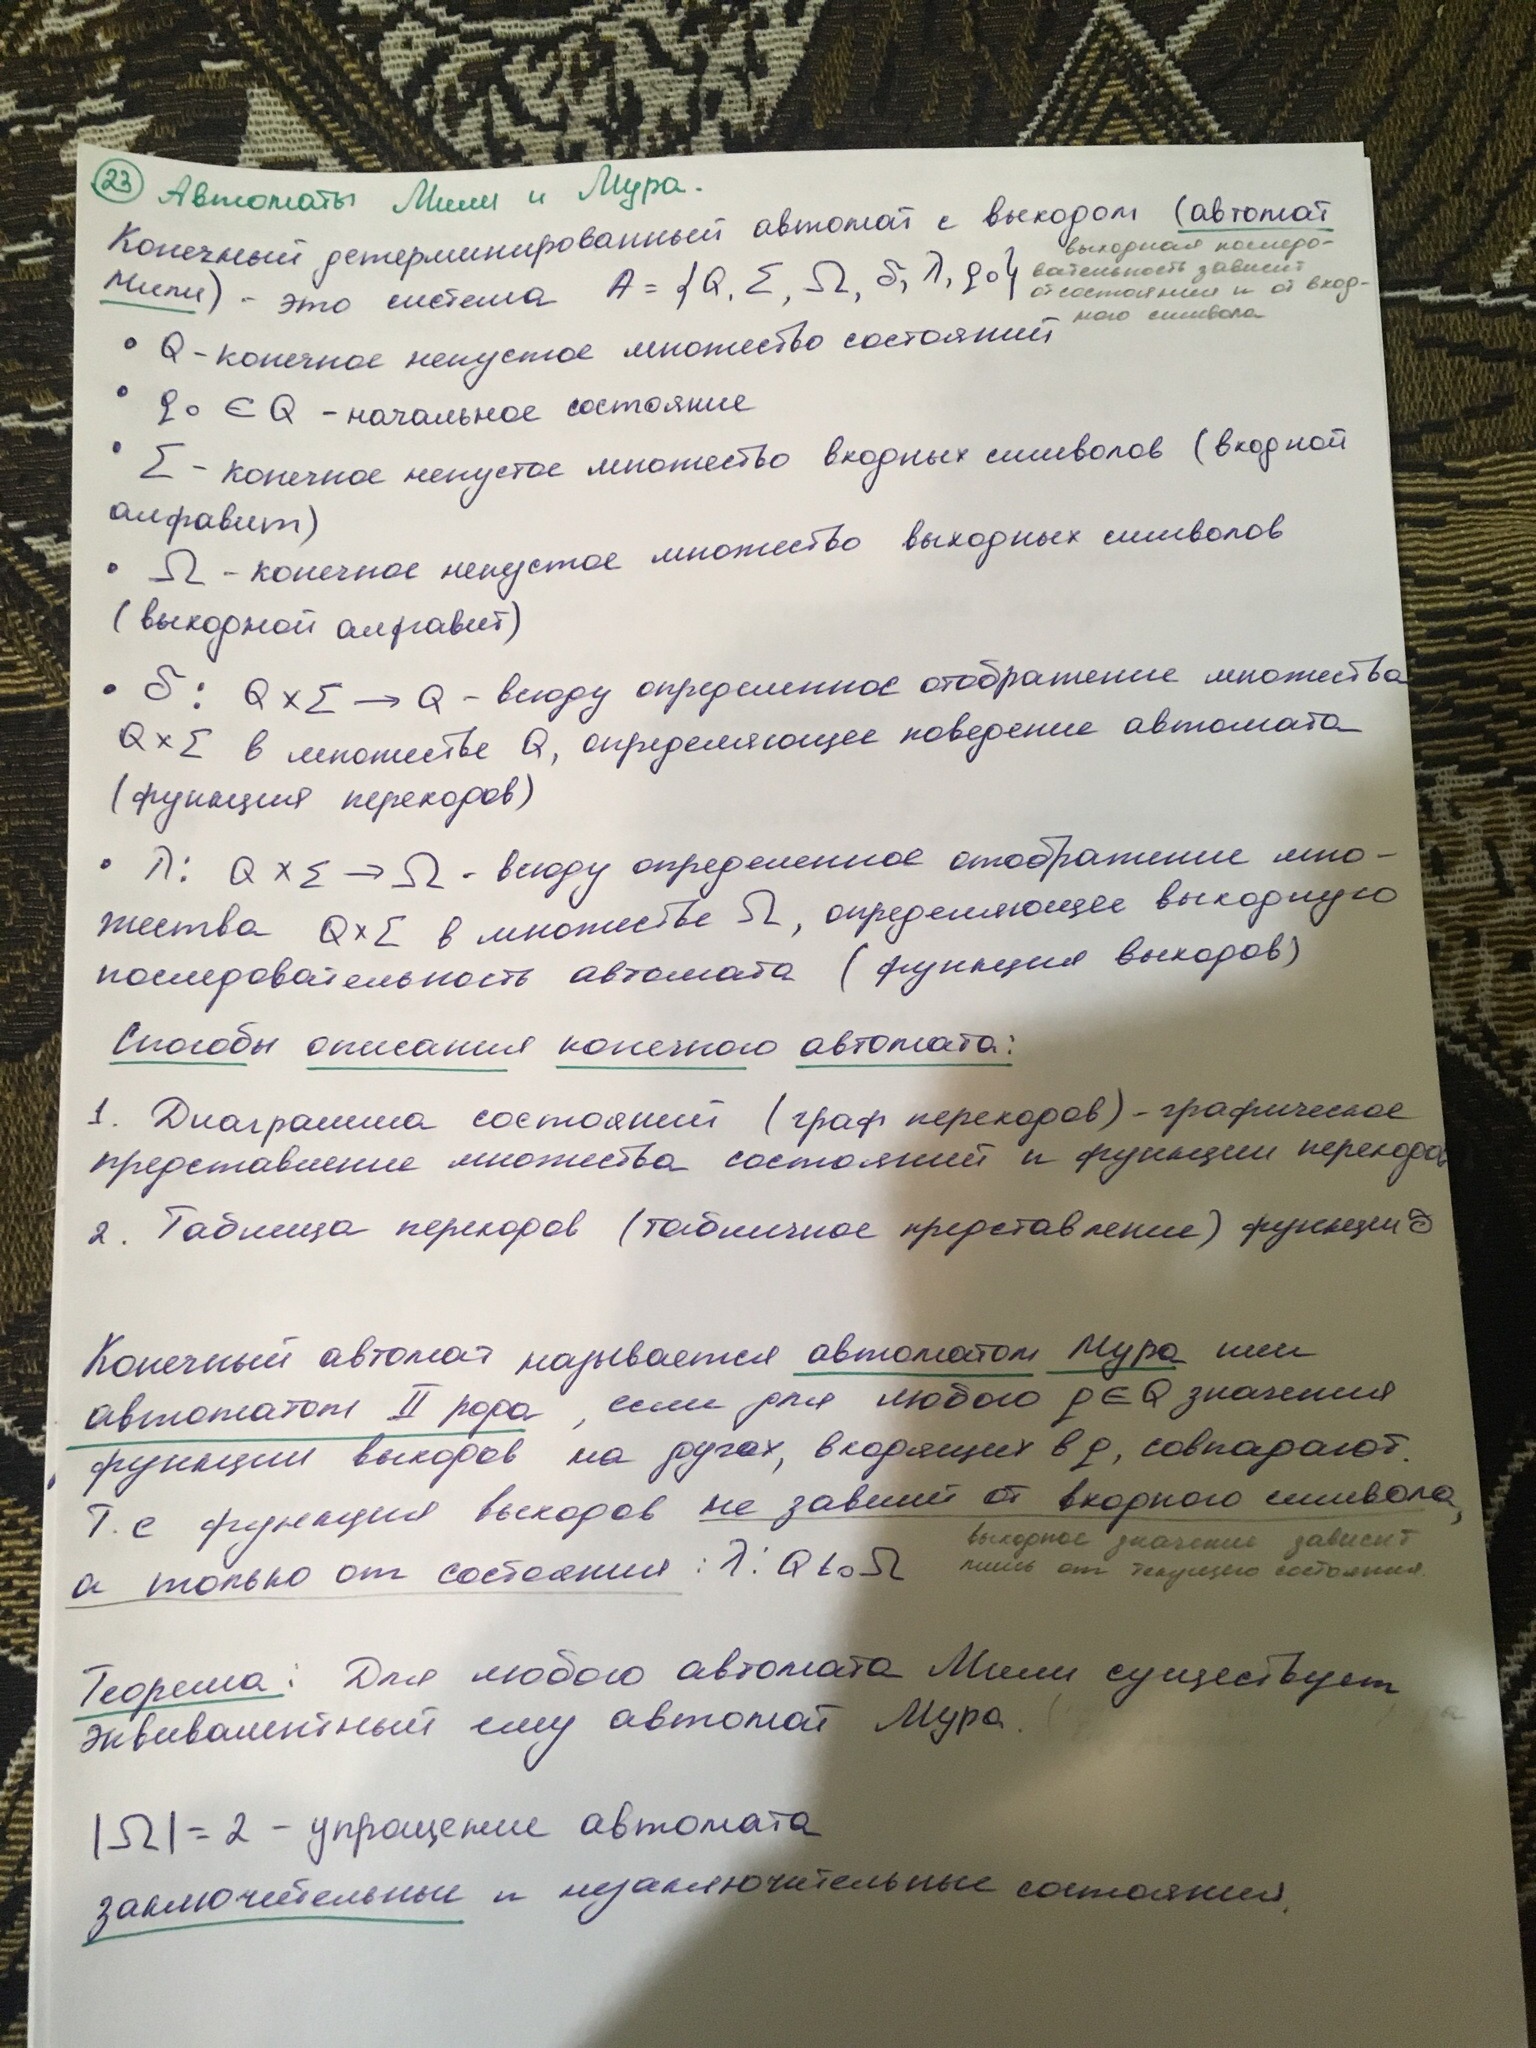 23 Автоматы Мили и Мура.
Конечный детерминированный автомат с выходом (автомат
Мили) - это система A = {Q, Σ, Ω, δ, λ, q0}
выходная последо-
вательность зависит
от состояния и от вход-
ного символа
• Q - конечное непустое множество состояний
• q0 ∈ Q - начальное состояние
• Σ - конечное непустое множество входных символов (входной
алфавит)
• Ω - конечное непустое множество выходных символов
(выходной алфавит)
• δ: Q×Σ → Q - всюду определенное отображение множества
Q×Σ в множестве Q, определяющее поведение автомата
(функция переходов)
• λ: Q×Σ → Ω - всюду определенное отображение мно-
жества Q×Σ в множестве Ω, определяющее выходную
последовательность автомата (функция выходов)
Способы описания конечного автомата:
1. Диаграмма состояний (граф переходов) - графическое
представление множества состояний и функции переходов
2. Таблица переходов (табличное представление) функции δ
Конечный автомат называется автоматом Мура или
автоматом II рода, если для любого q ∈ Q значения
функции выходов на дугах, входящих в q, совпадают.
Т.е функция выходов не зависит от входного символа,
а только от состояния: λ: Q Ω
выходное значение зависит
лишь от текущего состояния.
Теорема: Для любого автомата Мили существует
эквивалентный ему автомат Мура.
|Ω| = 2 - упрощение автомата
заключительные и незаключительные состояния.